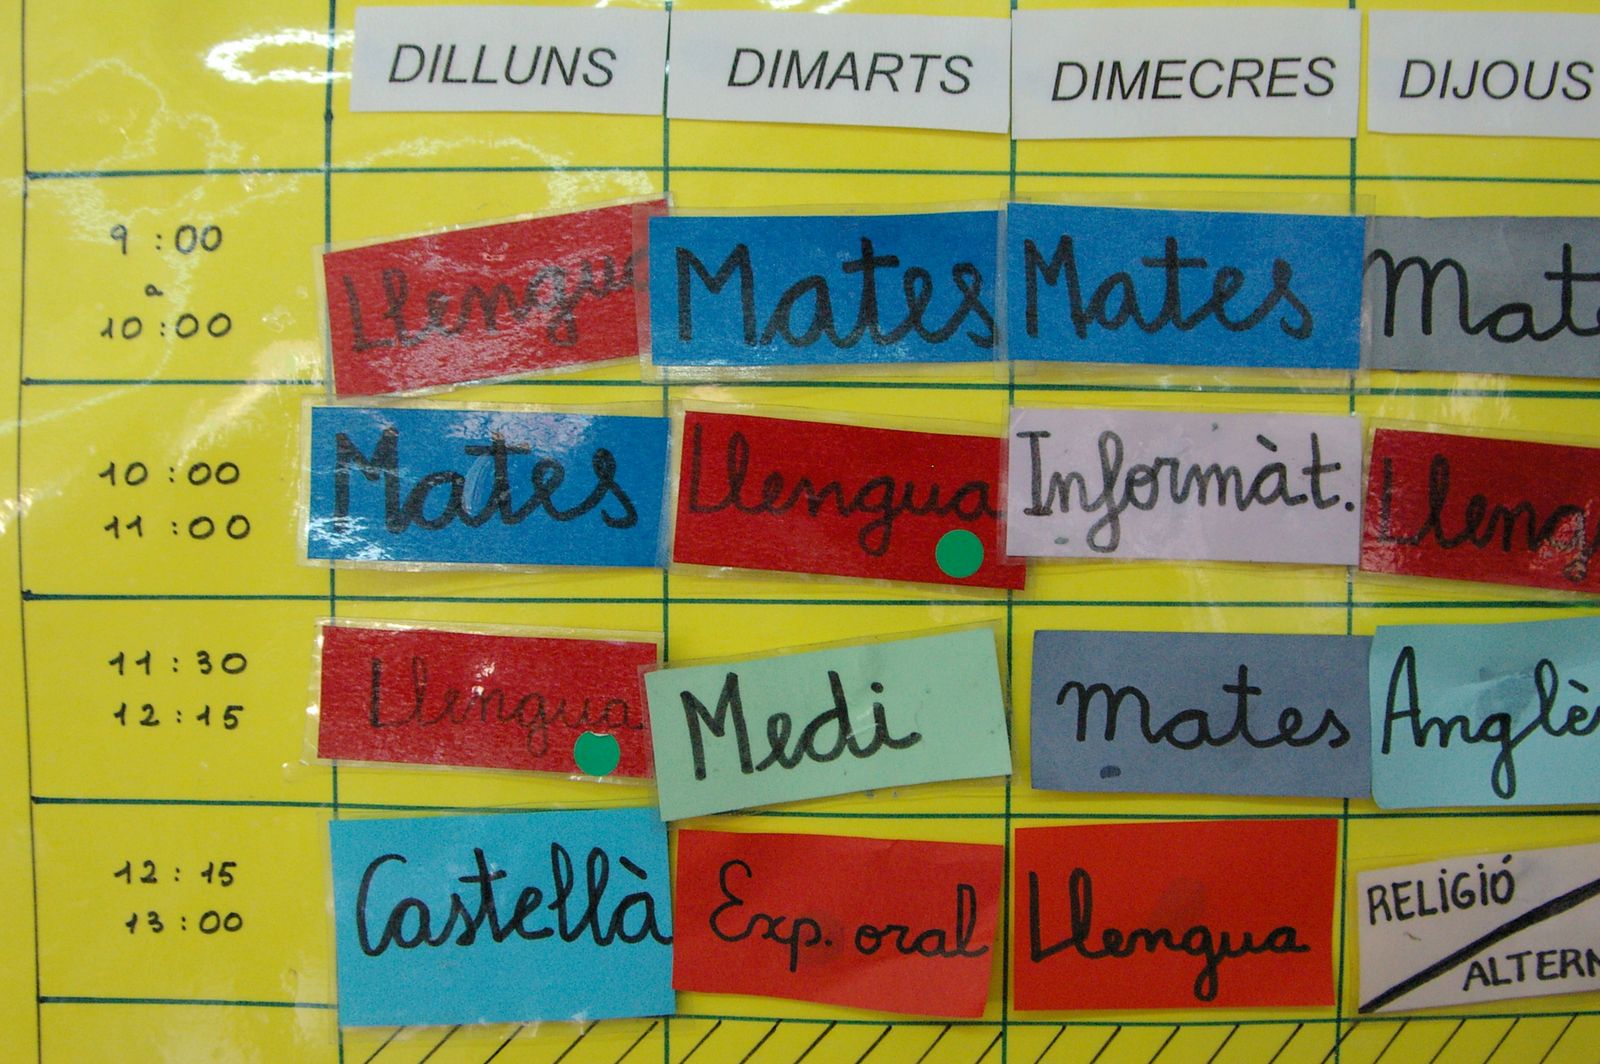 DILLUNS DIMARTS DIMECRES DIJOUS
9:00
a
10:00
Llengua Mates Mates Mat
10:00
11:00
Mates Llengua Informàt. Lleng
11:30
12:15
Llengua Medi mates Anglè
12:15
13:00
Castellà Exp. oral Llengua RELIGIÓ
ALTERN